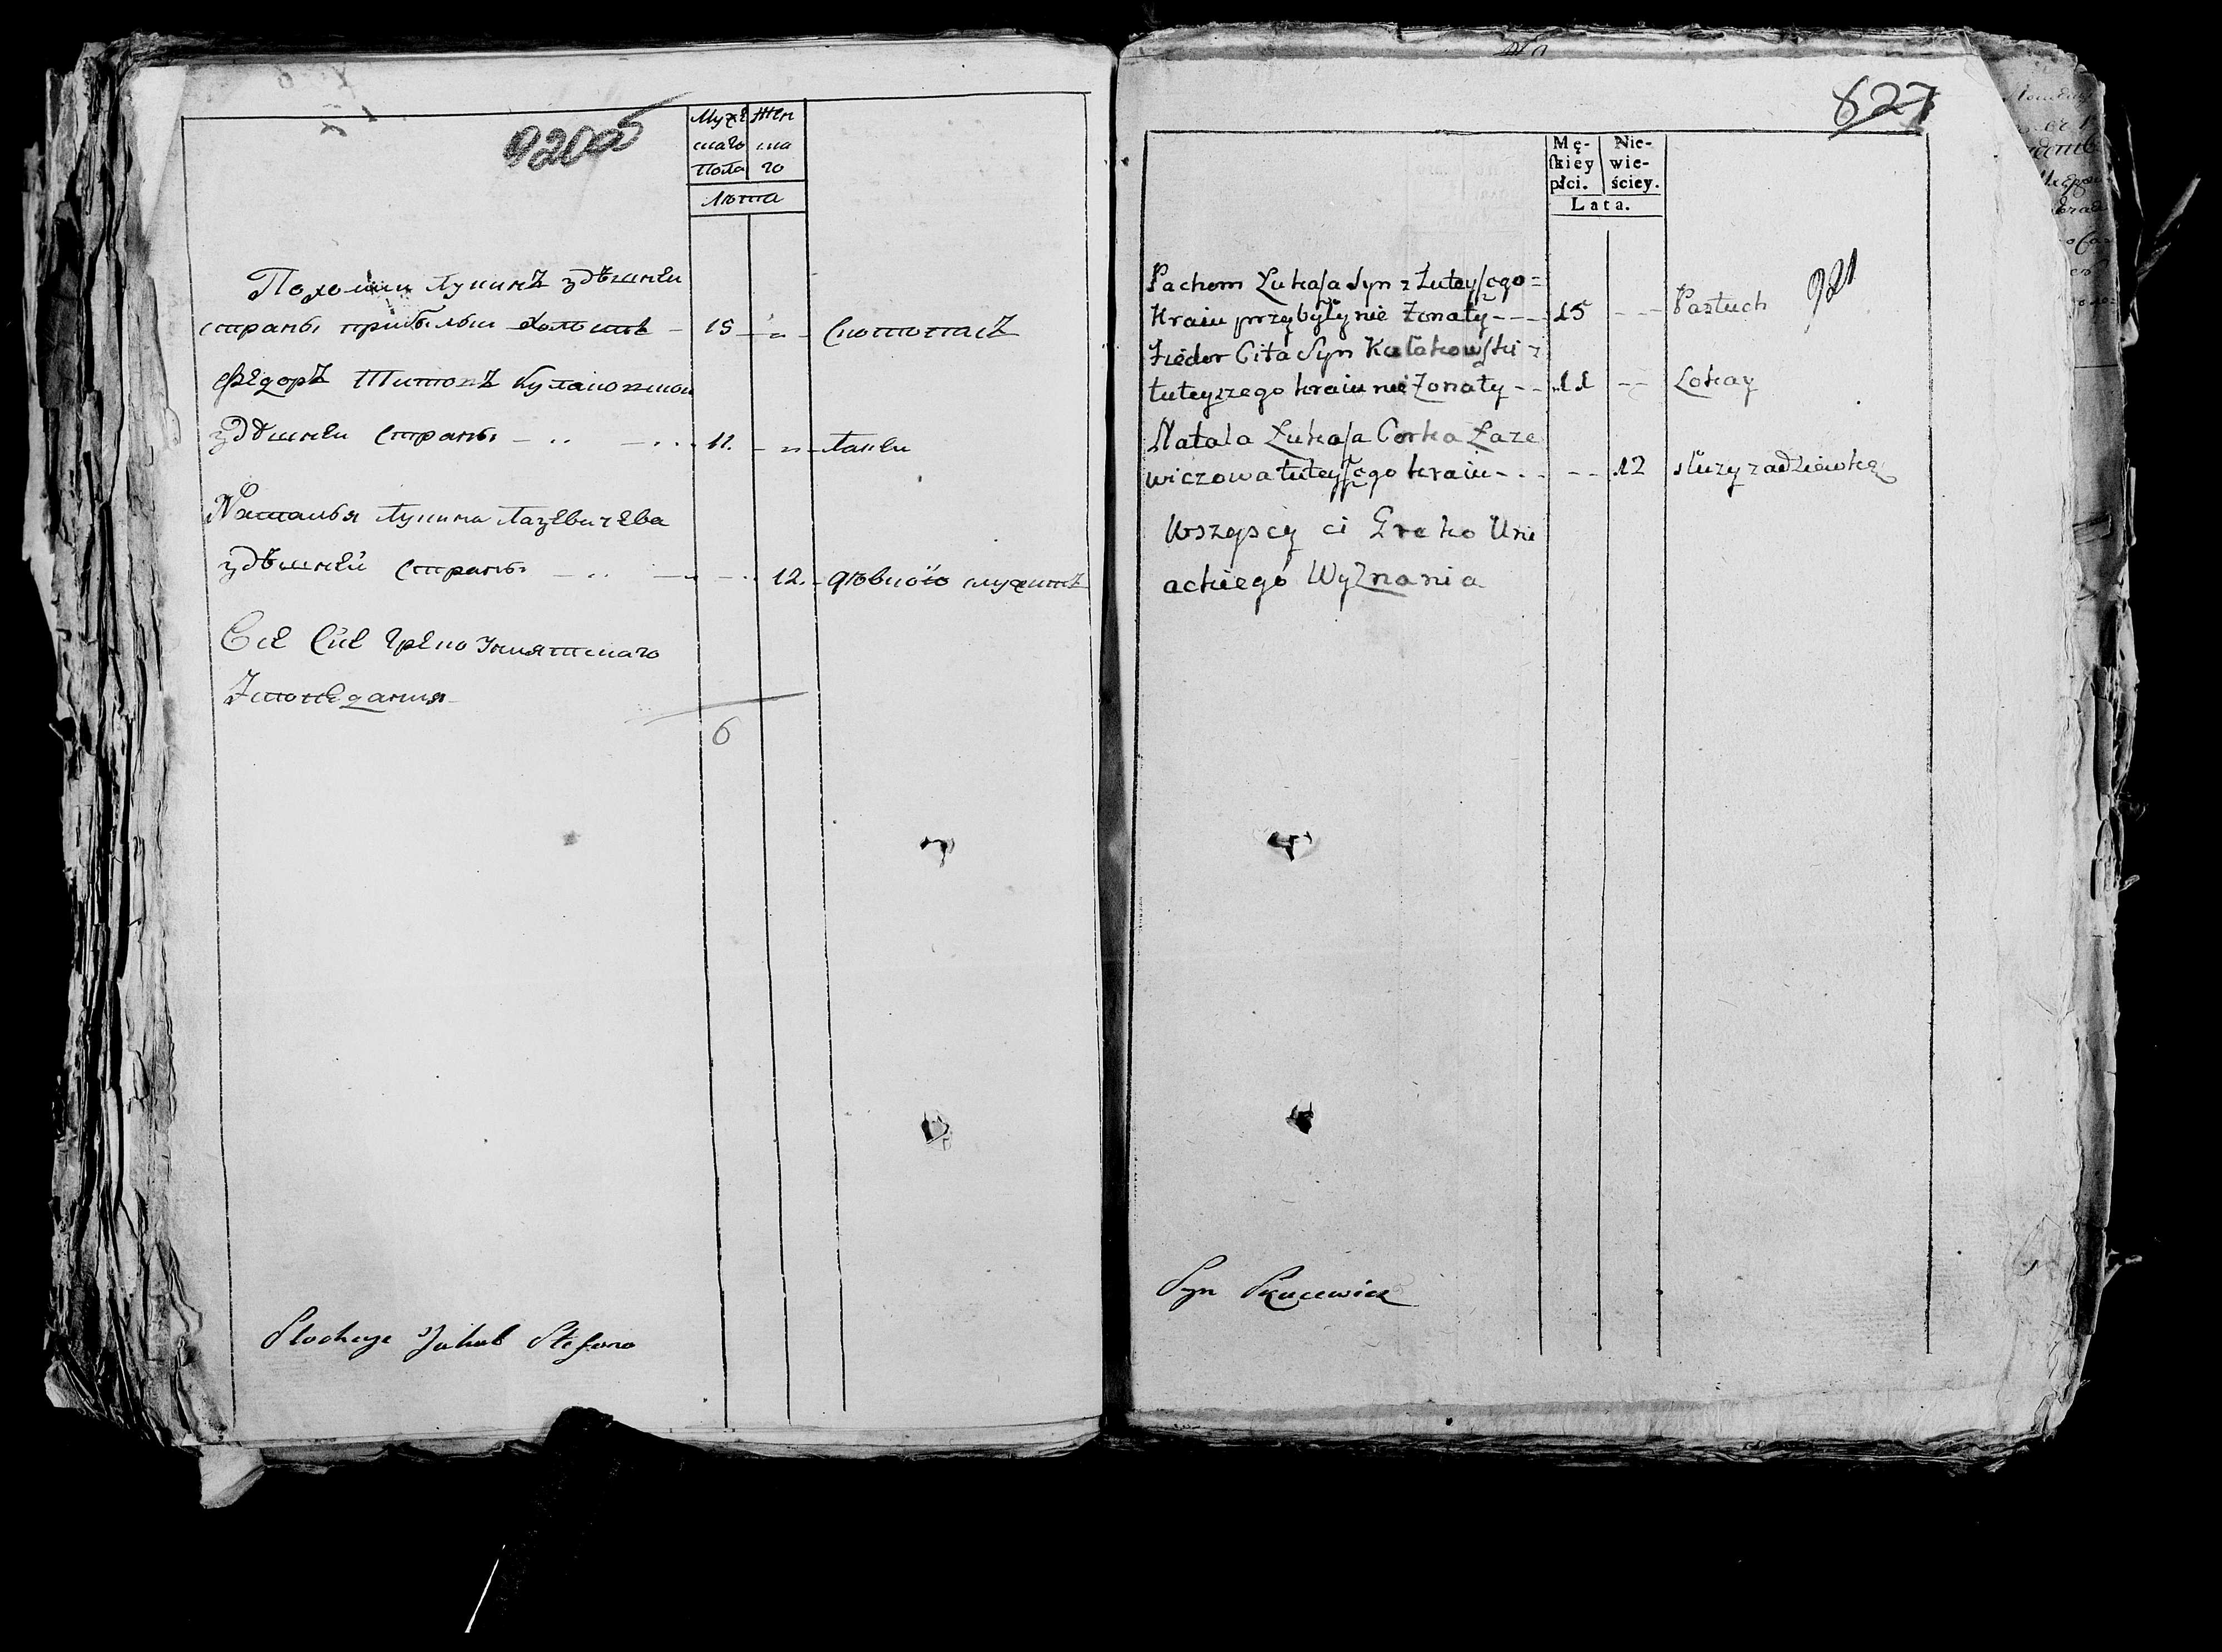 920об
Мужескаго Пола
Женскаго
Лѣта
Похомъ Лукинъ здѣшнеи
страны прибылыи холостъ - 15 - " - скотопасъ
Федоръ Титовъ Кулаковскои
здѣшнеи страны - .. - ... 11. - " - лакеи
Наталья Лукина Лазевичева
здѣшнеи страны - .. - - .. 12. - дѣвкою служитъ
Всѣ сіе Греко Униятскаго
Исповедания
6
Jakub Stefana
627
Mę-
skiey
płci.
Nie-
wie-
ściey.
Lata.
921
Pachom Łukasa Syn z Tuteyszego =
Kraiu przybyły nie Żonaty - - - 15 - - - Pastuch
Fiedor Cita Syn Kułakowski z
tuteyszego kraiu nie Żonaty - - 11 - - Lokay
Natala Łukasa Corka Łaze
wiczowa tuteyszego kraiu - . - - - 12 służy za dziewkę
Wszyscy ci Greko Uni
ackiego Wyznania
Syn